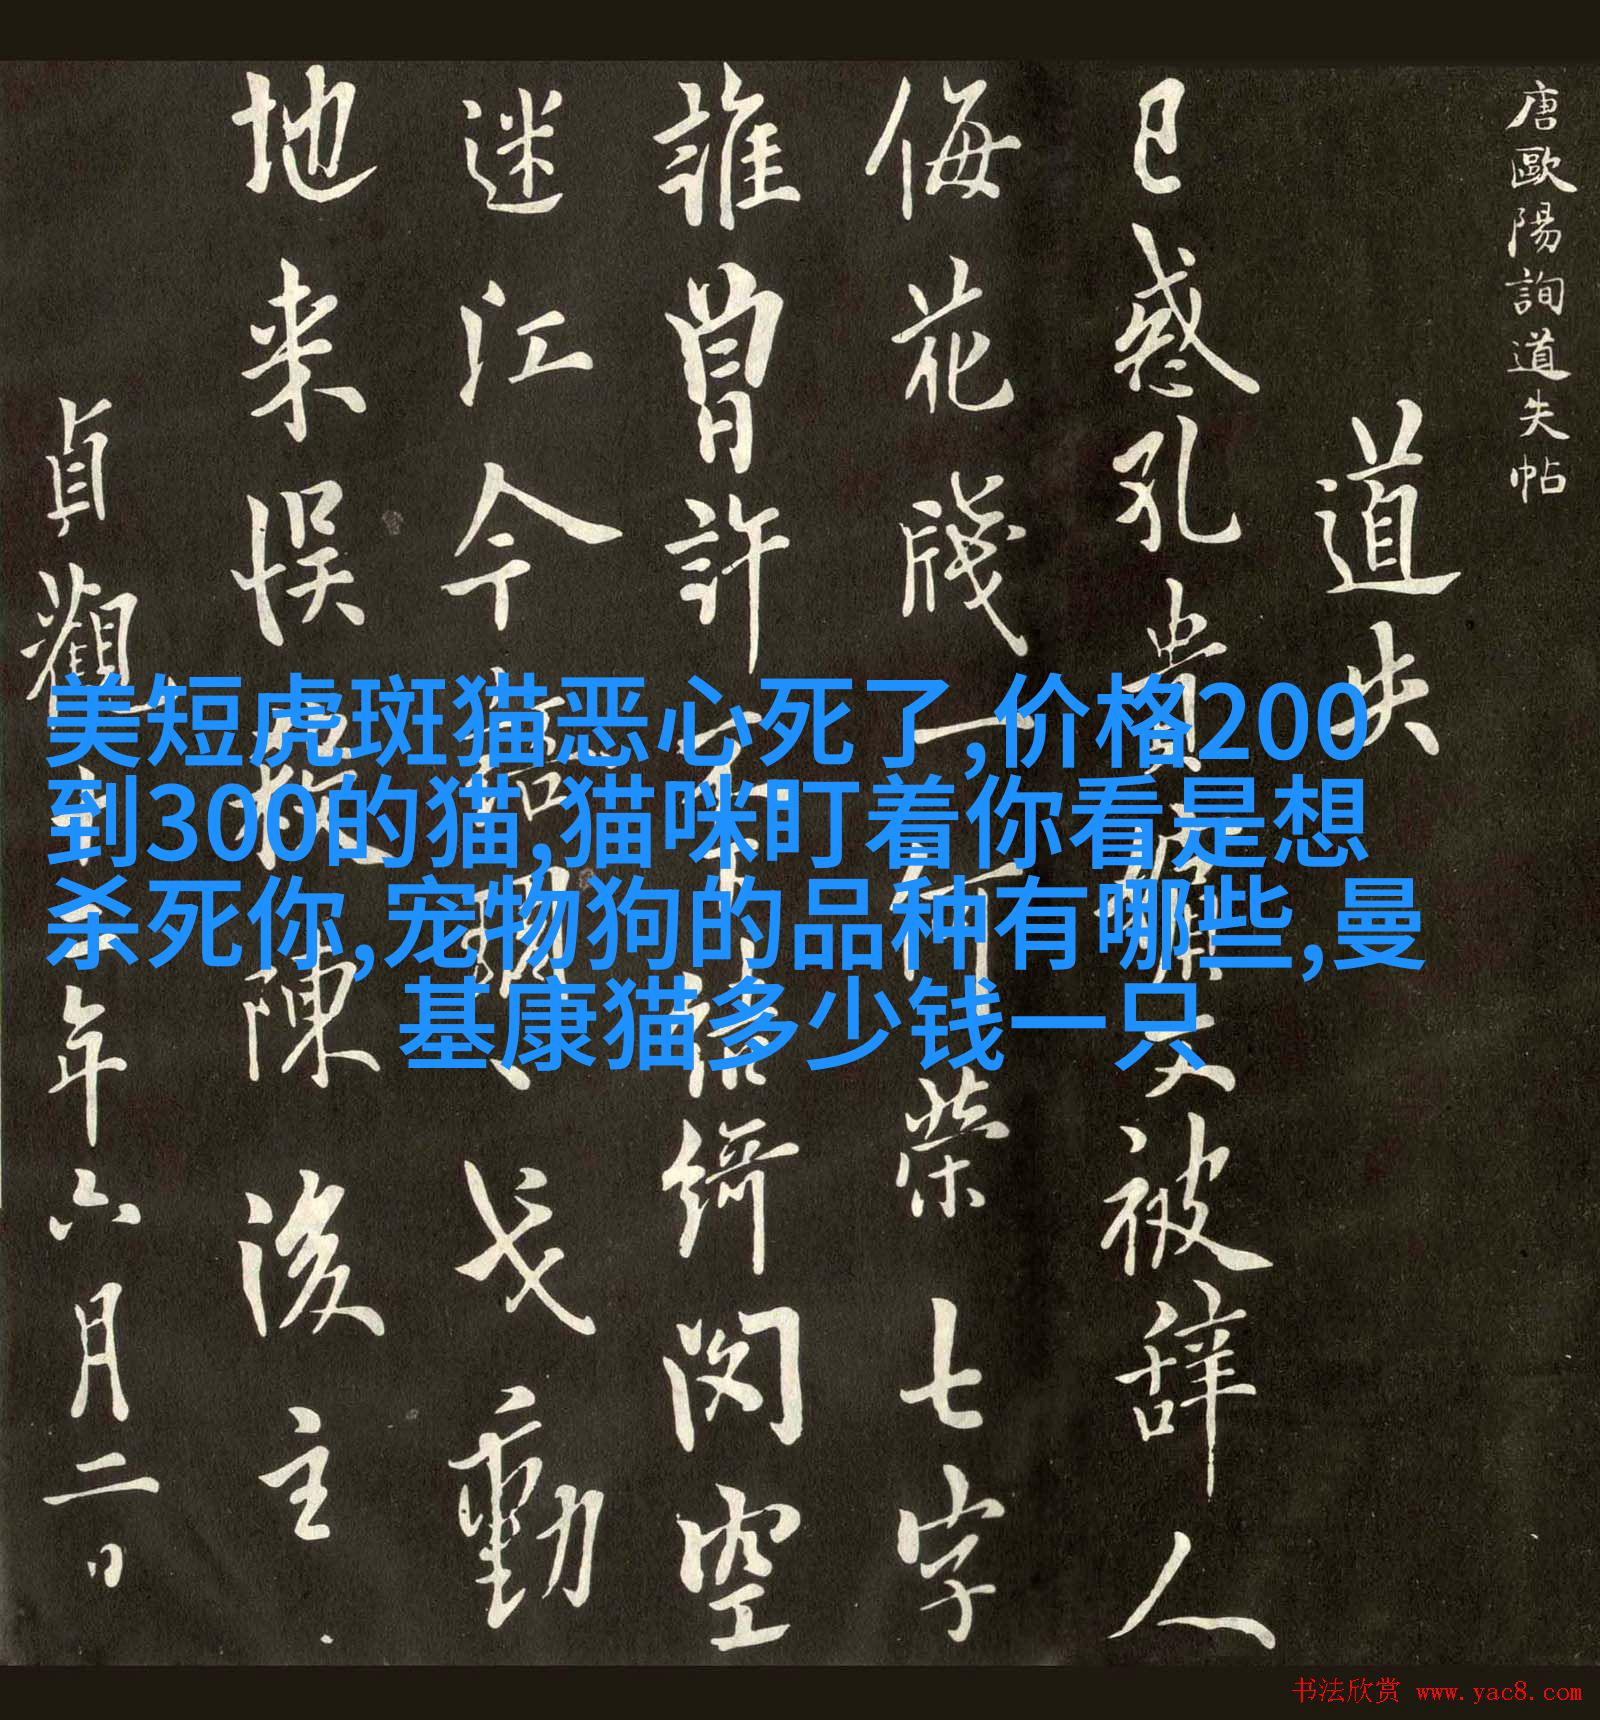 唐歐陽詢道失帖
道失
已惑孔貴嬪又被辭人
侮花牋一何榮七字
誰曾許不下結綺閣空
迷江令戈動
地来悮陳後主
貞觀年六月二日
美短虎斑猫恶心死了,价格200
到300的猫,猫咪盯着你看是想
杀死你,宠物狗的品种有哪些,曼
基康猫多少钱一只
书法欣赏 www.yac8.com